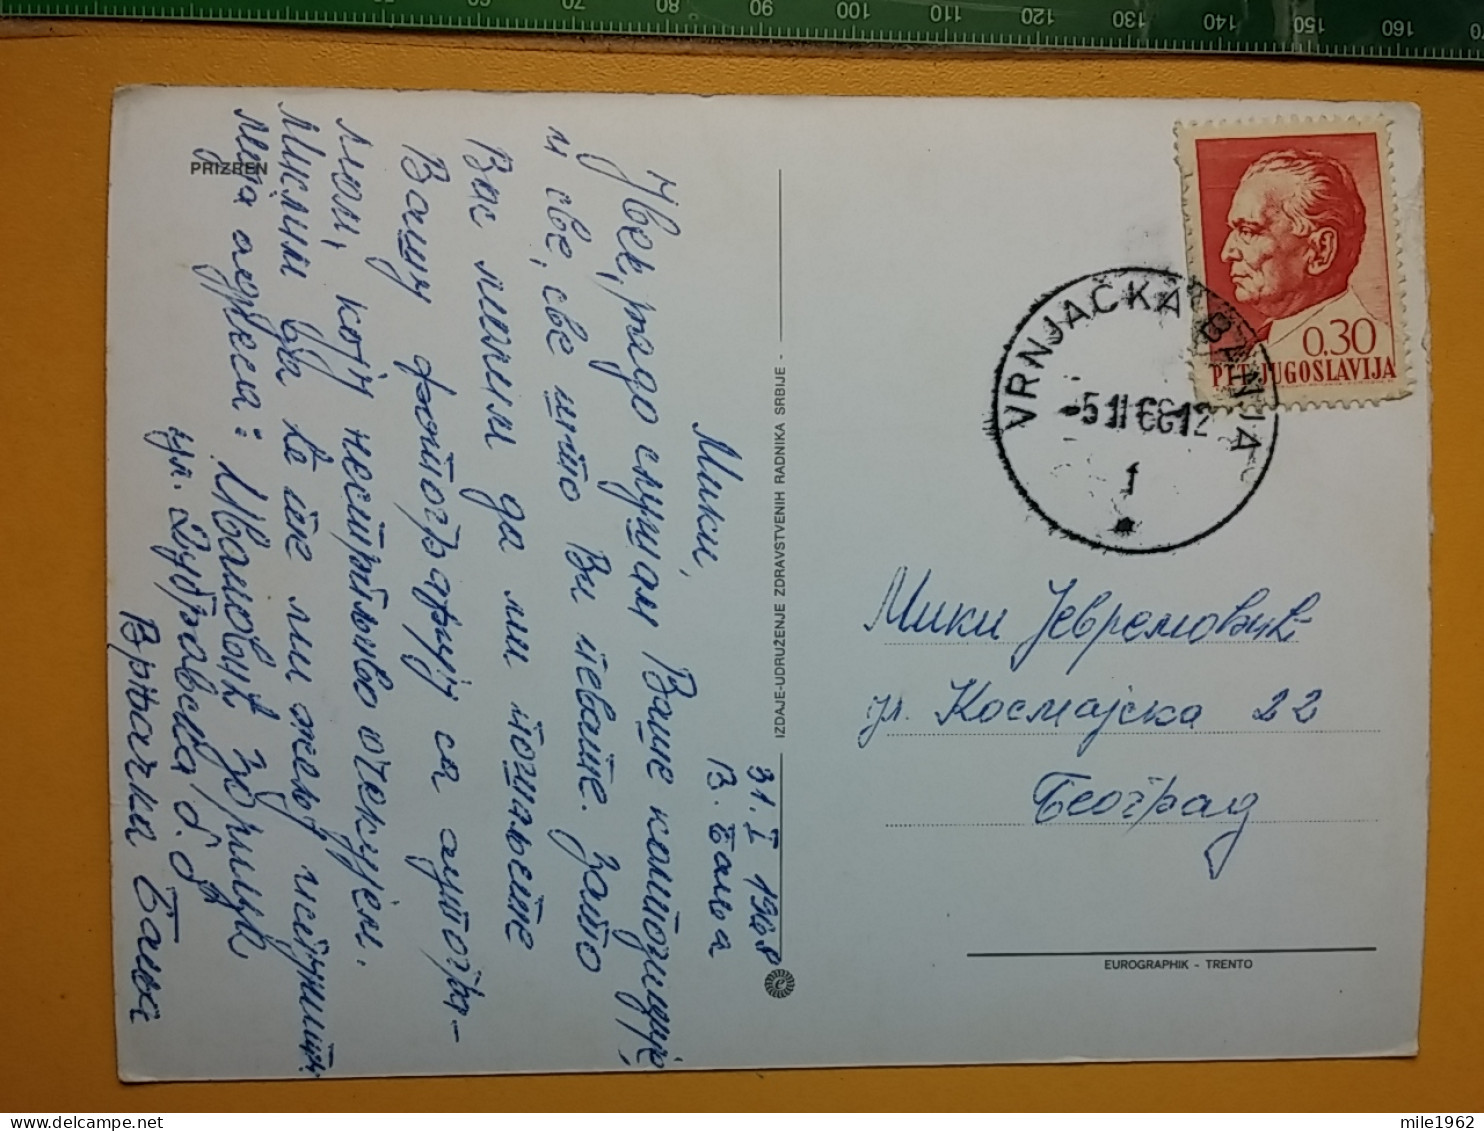 50 60 70 80 90 100 110 120 130 140 150 160
PRIZREN
31. I 1968
В. Бања
Мики,
Увек, радо слушам Ваше композиције,
и све, све што Ви певате. Зато
Вас молим да ми пошаљете
Вашу фотографију са аутогра-
мом, коју нестрпљиво очекујем.
Мислим да ће те ми жељу испунити.
Моја адреса: Ивановић Зорица
ул. Дубравска б.б.
Врњачка Бања
IZDAJE-UDRUŽENJE ZDRAVSTVENIH RADNIKA SRBIJE -
0.30
PTT JUGOSLAVIJA
VRNJAČKA BANJA
-5 II 68 12
1
Мики Јевремовић
ул. Космајска 22
Београд
EUROGRAPHIK - TRENTO
mile1962